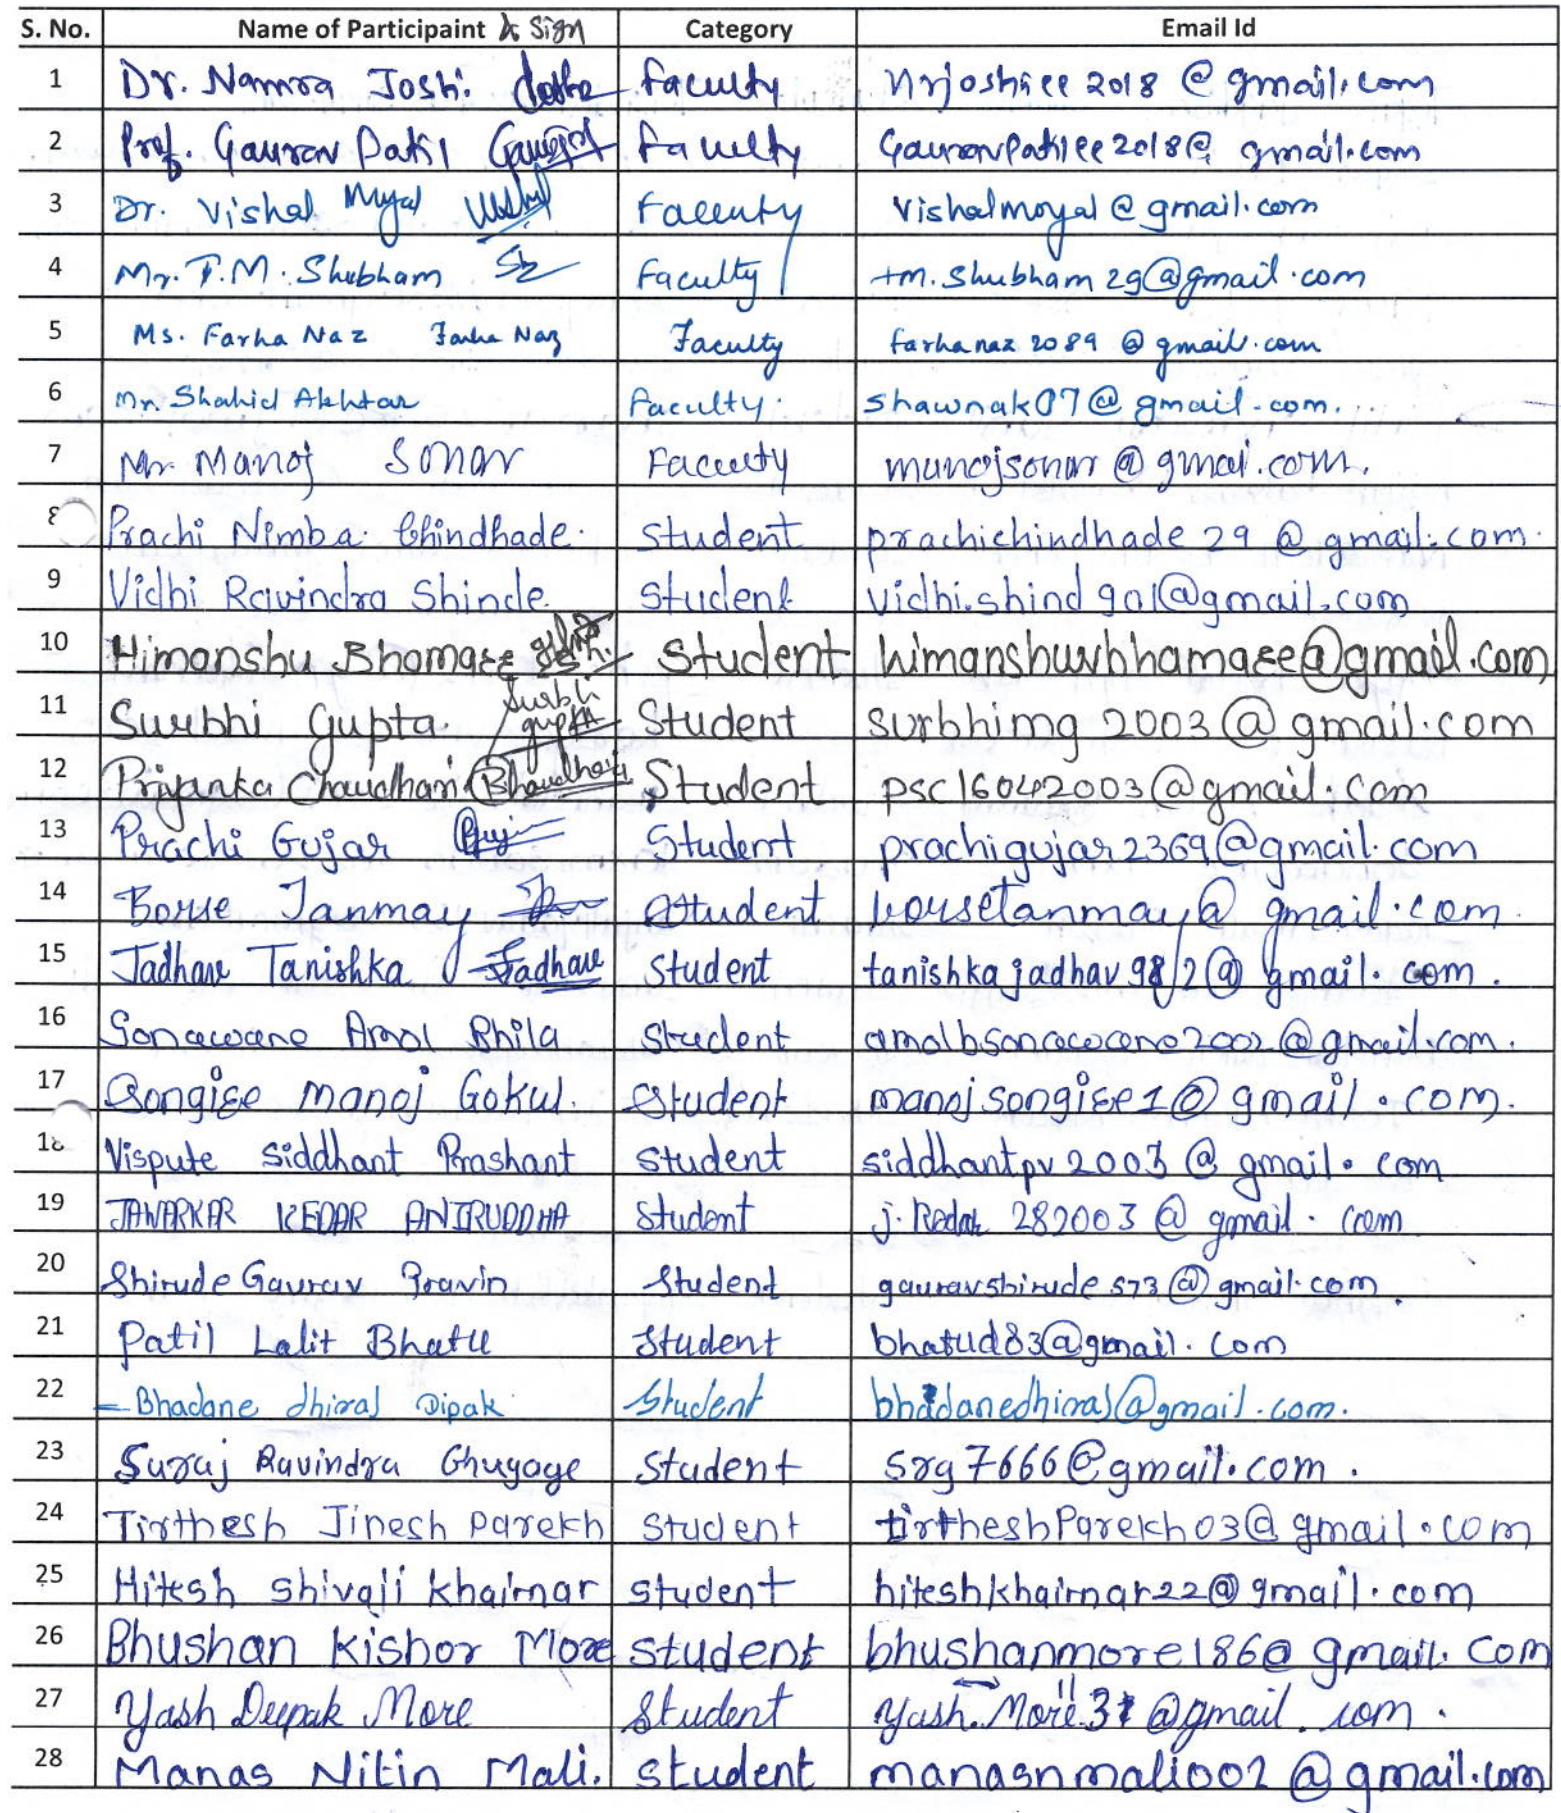 S. No. Name of Participaint & Sign Category Email Id
1 Dr. Namra Joshi. Joshi Faculty nrjoshiee2018@gmail.com
2 Prof. Gaurav Patil Faculty Gauravpatilee2018@gmail.com
3 Dr. Vishal Moyal Vishal Faculty vishalmoyal@gmail.com
4 Mr. T.M. Shubham Faculty tm.shubham29@gmail.com
5 Ms. Farha Naz Farha Naz Faculty farhanaz2089@gmail.com
6 Mr. Shahid Akhtar Faculty. shawnak07@gmail.com.
7 Mr. Manoj Sonar Faculty manojsonar@gmai.com.
8 Prachi Nimba Chindhade. Student prachichindhade29@gmail.com.
9 Vidhi Ravindra Shinde. Student vidhi.shind901@gmail.com
10 Himanshu Bhamare Student himanshuvbhamare@gmail.com
11 Surbhi Gupta. Surbhi gupta Student surbhimg2003@gmail.com
12 Priyanka Chaudhari Student psc16042003@gmail.com
13 Prachi Gujar Student prachigujar2369@gmail.com
14 Borse Tanmay Student borsetanmay@gmail.com.
15 Jadhav Tanishka Jadhav Student tanishkajadhav9812@gmail.com.
16 Sonawane Amol Bhila Student amolbsonawane2002@gmail.com.
17 Songire Manoj Gokul. Student manojsongire1@gmail.com.
18 Vispute Siddhant Prashant Student siddhantpv2003@gmail.com
19 JAWARKAR KEDAR ANIRUDDHA Student j.kedar282003@gmail.com
20 Shirude Gaurav Pravin Student gauravshirude573@gmail.com.
21 Patil Lalit Bhatu Student bhatud83@gmail.com
22 Bhadane dhiraj Dipak Student bhadanedhiraj@gmail.com.
23 Suraj Ravindra Ghugage Student srg7666@gmail.com.
24 Tirthesh Jinesh Parekh Student tirtheshParekh03@gmail.com
25 Hitesh Shivaji Khairnar Student hiteshkhairnar22@gmail.com
26 Bhushan Kishor More Student bhushanmore186@gmail.com
27 Yash Deepak More Student yash.More.31@gmail.com.
28 Manas Nitin Mali. Student manasnmali002@gmail.com